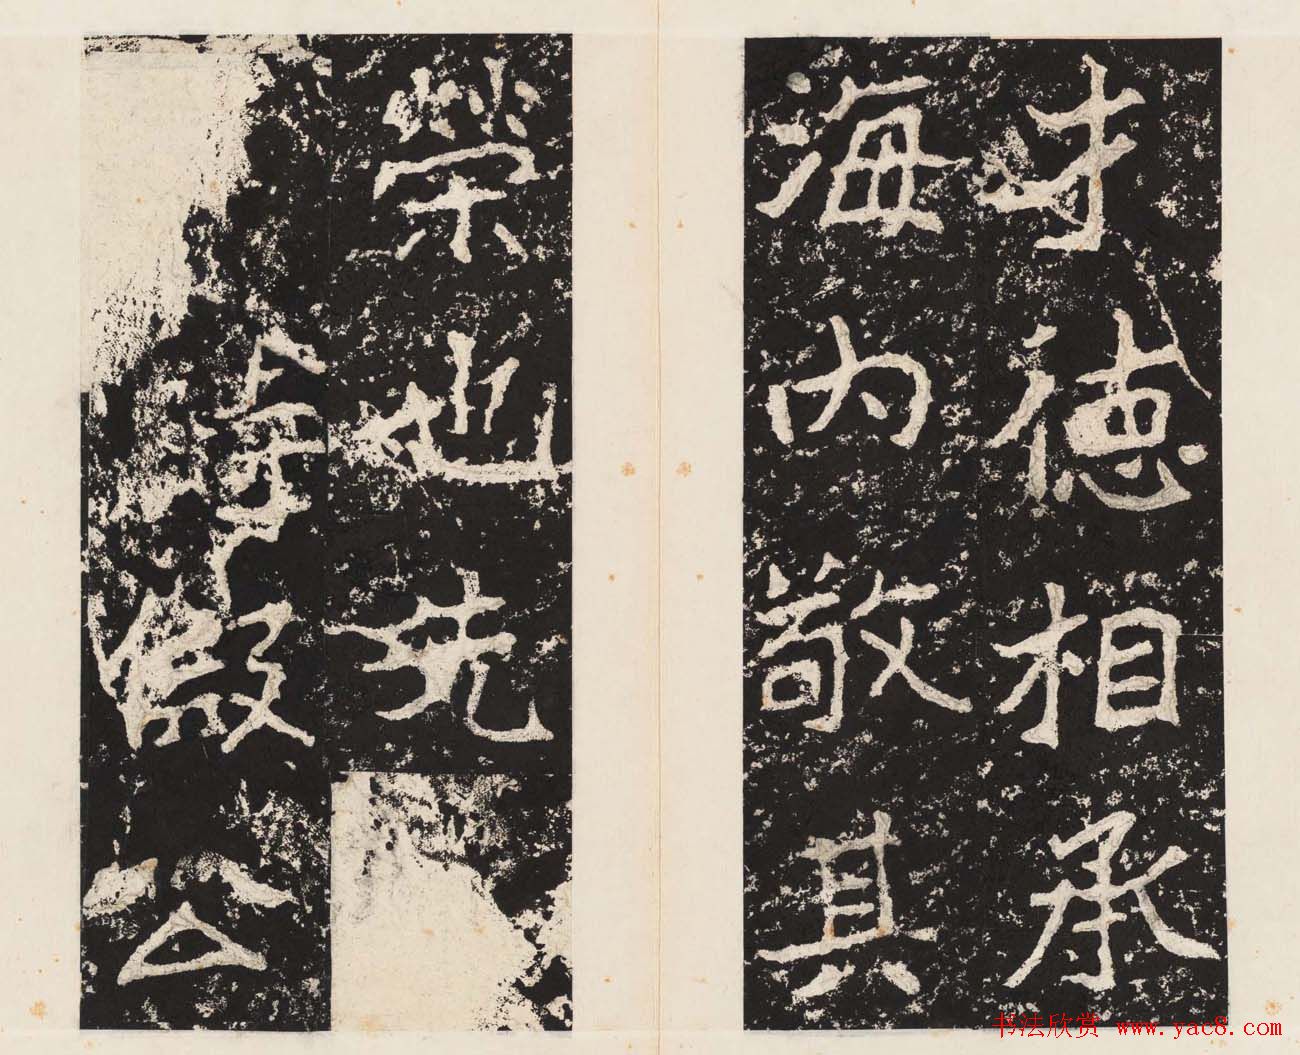 才德相承
海内敬其
榮也先
時假公
書法欣赏 www.yac8.com